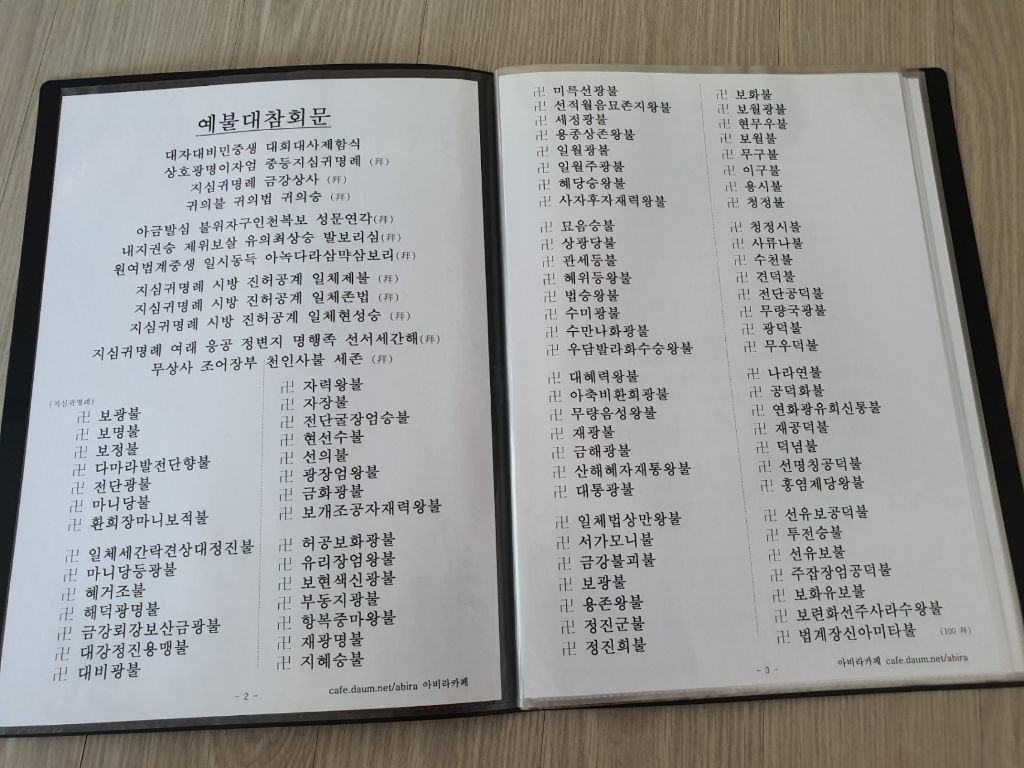 예불대참회문
대자대비민중생 대희대사제함식
상호광명이자엄 중등지심귀명례 (拜)
지심귀명례 금강상사 (拜)
귀의불 귀의법 귀의승 (拜)
아금발심 불위자구인천복보 성문연각(拜)
내지권승 제위보살 유의최상승 발보리심(拜)
원여법계중생 일시동득 아녹다라삼먁삼보리(拜)
지심귀명례 시방 진허공계 일체제불 (拜)
지심귀명례 시방 진허공계 일체존법 (拜)
지심귀명례 시방 진허공계 일체현성승 (拜)
지심귀명례 여래 응공 정변지 명행족 선서세간해(拜)
무상사 조어장부 천인사불 세존 (拜)
(지심귀명례)
卍 보광불
卍 보명불
卍 보정불
卍 다마라발전단향불
卍 전단광불
卍 마니당불
卍 환희장마니보적불
卍 일체세간락견상대정진불
卍 마니당등광불
卍 혜거조불
卍 해덕광명불
卍 금강뢰강보산금광불
卍 대강정진용맹불
卍 대비광불
卍 자력왕불
卍 자장불
卍 전단굴장엄승불
卍 현선수불
卍 선의불
卍 광장엄왕불
卍 금화광불
卍 보개조공자재력왕불
卍 허공보화광불
卍 유리장엄왕불
卍 보현색신광불
卍 부동지광불
卍 항복중마왕불
卍 재광명불
卍 지혜승불
- 2 -
cafe.daum.net/abira 아비라카페
卍 미륵선광불
卍 선적월음묘존지왕불
卍 세정광불
卍 용종상존왕불
卍 일월광불
卍 일월주광불
卍 혜당승왕불
卍 사자후자재력왕불
卍 묘음승불
卍 상광당불
卍 관세등불
卍 혜위등왕불
卍 법승왕불
卍 수미광불
卍 수만나화광불
卍 우담발라화수승왕불
卍 대혜력왕불
卍 아축비환희광불
卍 무량음성왕불
卍 재광불
卍 금해광불
卍 산해혜자재통왕불
卍 대통광불
卍 일체법상만왕불
卍 서가모니불
卍 금강불괴불
卍 보광불
卍 용존왕불
卍 정진군불
卍 정진희불
卍 보화불
卍 보월광불
卍 현무우불
卍 보월불
卍 무구불
卍 이구불
卍 용시불
卍 청정불
卍 청정시불
卍 사류나불
卍 수천불
卍 견덕불
卍 전단공덕불
卍 무량국광불
卍 광덕불
卍 무우덕불
卍 나라연불
卍 공덕화불
卍 연화광유희신통불
卍 재공덕불
卍 덕념불
卍 선명칭공덕불
卍 홍염제당왕불
卍 선유보공덕불
卍 투전승불
卍 선유보불
卍 주잡장엄공덕불
卍 보화유보불
卍 보련화선주사라수왕불
卍 법계장신아미타불 (100 拜)
- 3 -
아비라카페 cafe.daum.net/abira